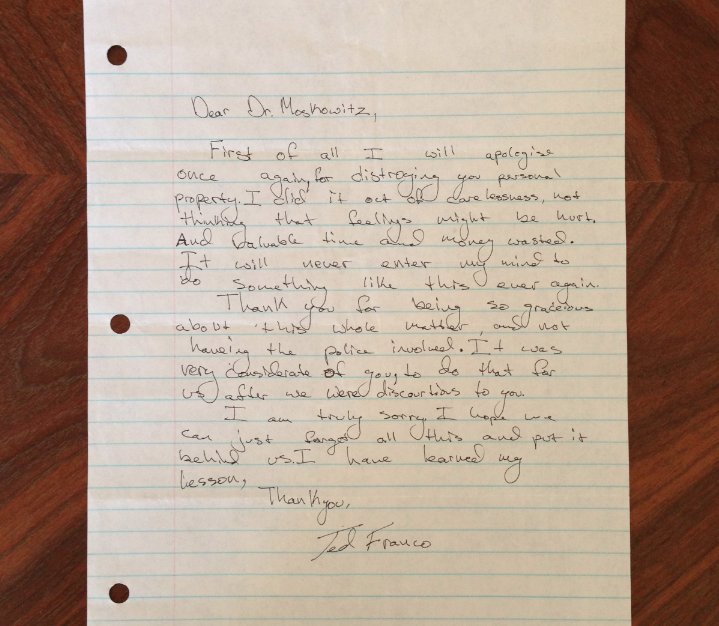 Dear Dr. Moskowitz,
First of all I will apologise
once again, for distroying you personal
property. I did it out of carelessness, not
thinking that feelings might be hurt.
And valuable time and money wasted.
It will never enter my mind to
do something like this ever again.
Thank you for being so gracious
about this whole matter, and not
haveing the police involved. It was
very considerate of you, to do that for
us after we were discourtious to you.
I am truly sorry I hope we
can just forget all this and put it
behind us. I have learned my
lesson,
Thankyou,
Ted Franco